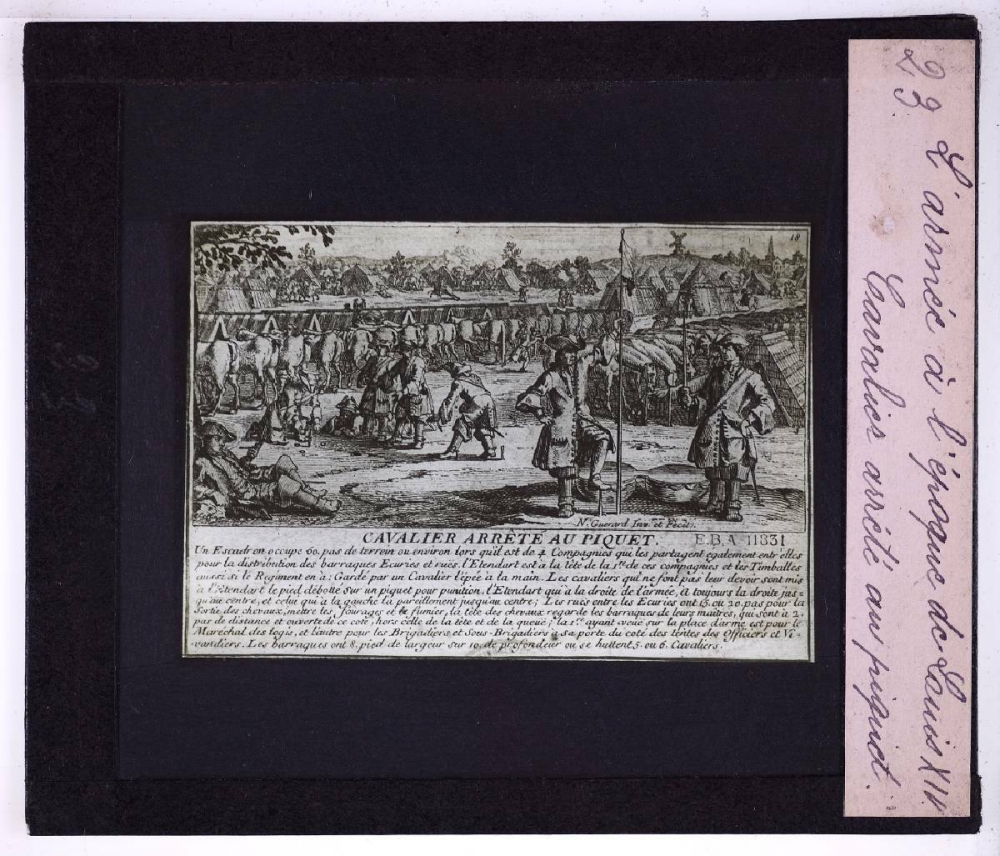 23 L'armée à l'époque de Louis XIV.
Cavalier arrêté au piquet.
18
N. Guerard Inv. et Fecit.
CAVALIER ARRÊTÉ AU PIQUET.
E.B.A 11831
Un Escadron occupe 60. pas de terrein ou environ lors qu'il est de 4 Compagnies qui les partagent egalement entr'elles
pour la distribution des barraques Ecuries et ruës, l'Etendart est à la tête de la 1re de ces compagnies et les Timballes
aussi si le Regiment en a: Gardé par un Cavalier l'épée à la main. Les cavaliers qui ne font pas leur devoir sont mis
à l'Etendart le pied débotté sur un piquet pour punition, l'Etendart qui a la droite de l'armée, a toujours la droite jus-
qu'au centre, et celui qui a la gauche la pareillement jusqu'au centre; Les ruës entre les Ecuries ont 15. ou 20. pas pour la
Sortie des chevaux, mettre les fourages et le fumier, la tête des chevaux regarde les barraques de leurs maîtres, qui sont à 2.
pas de distance et ouverte de ce coté, hors celle de la tête et de la queuë; la 1re ayant veuë sur la place d'arme est pour le
Maréchal des logis, et l'autre pour les Brigadiers et Sous-Brigadiers a sa porte du coté des têntes des Officiers et Vi-
vandiers. Les barraques ont 8. pied de largeur sur 10. de profondeur ou se huttent 5. ou 6. Cavaliers.